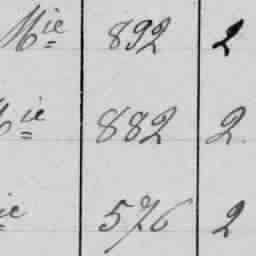 Mie 892 2
Mie 882 2
ie 576 2